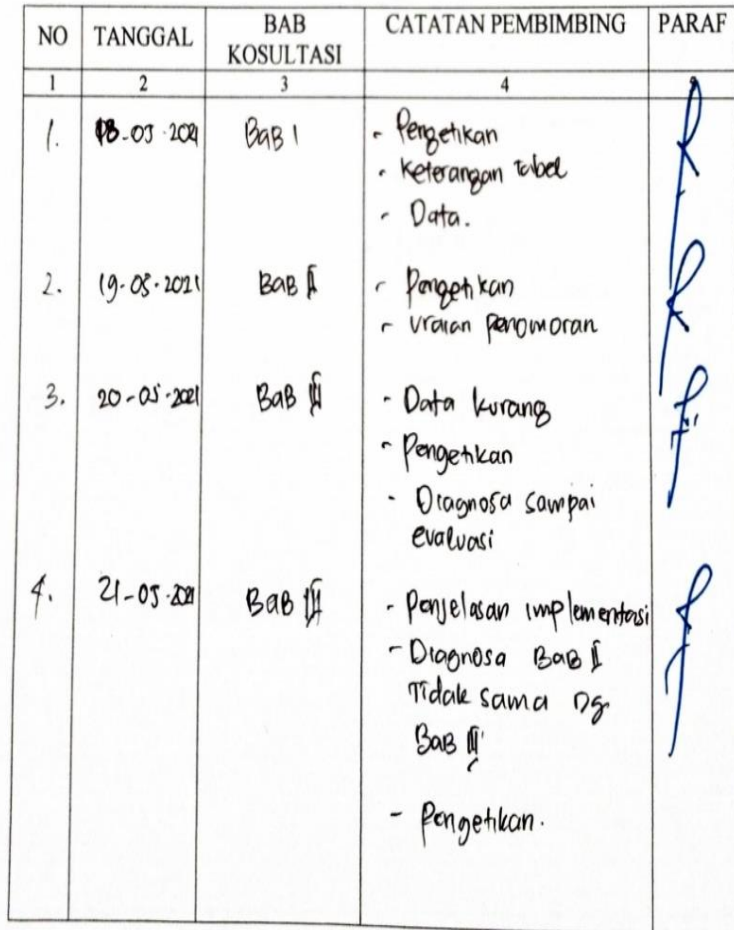 NO TANGGAL BAB KOSULTASI CATATAN PEMBIMBING PARAF
1 2 3 4
1. 18-05-2021 BAB I - Pengetikan
- Keterangan tabel
- Data.
2. 19-05-2021 BAB II - Pengetikan
- Uraian Penomoran
3. 20-05-2021 BAB III - Data kurang
- Pengetikan
- Diagnosa sampai
evaluasi
4. 21-05-2021 BAB III - Penjelasan implementasi
- Diagnosa BAB II
Tidak sama Dg
BAB III
- Pengetikan.